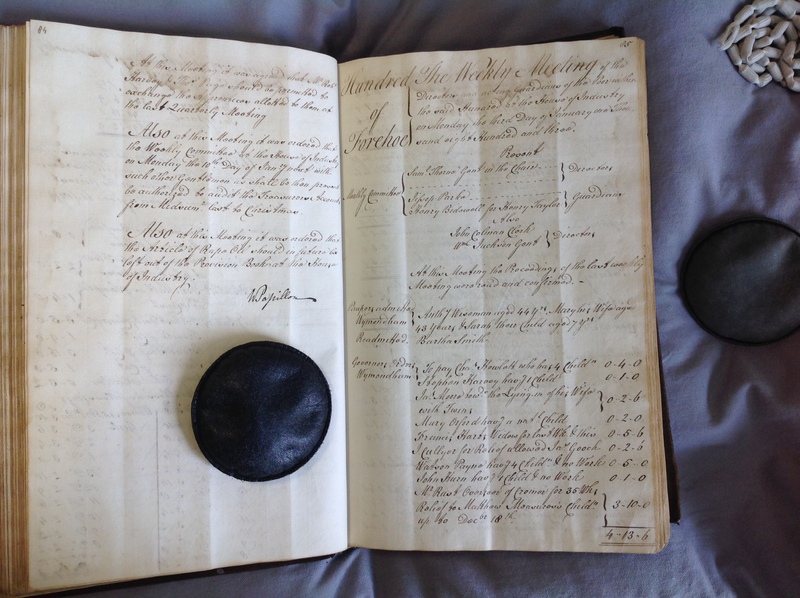 84
At this Meeting it was agreed that Mr Robt
Harvey & Mr should be permitted to
exchange the provisions allotted to them at
the last Quarterly Meeting
Also at this Meeting it was ordered that
the Weekly Committee at the House of Industry
on Monday the 10th Day of Jany next with
such other Gentlemen as shall be then present
be authorized to audit the Treasurers Accounts
from Midsumr last to Christmas
Also at this Meeting it was ordered that
the Article of Rape Oil should in future be
left out of the Provision Book at the House
of Industry.
W Papillon
85
Hundred
of
Forehoe
The Weekly Meeting of the
Directors and acting Guardians of the Poor within
the said Hundred at the House of Industry
on Monday the third Day of January one Thou-
sand eight Hundred and three.
Present
Weekly Committee
Saml Thorne Gent in the Chair
Directors
Jessop Parke
Henry Bidewell for Henry Taylor
Guardians
Also
John Colman Clerk
Wm Jackson Gent
Directors
At this Meeting the Proceedings of the last weekly
Meeting were read and confirmed. -
Paupers admitted
Wymondham
Anthy Wiseman aged 44 yrs, Mary his Wife aged
43 years & Sarah their Child aged 7 yrs
Readmitted.
Bertha Smith
Governor &
Wymondham
To pay Chas Howlett who has 4 Childn 0-4-0
Stephen Kerney havg 1 Child 0-1-0
Jas towds the Lying-in of his Wife
with Twins 0-2-6
Mary Orford havg a nat Child 0-2-0
Hart Widow for last Wk & this 0-5-6
J Cullyer for Relief allowed Jas Gooch 0-2-6
Watson Payne havg 4 Childn & no Work 0-5-0
John Hurn havg 1 Child & no Work 0-1-0
Mr Rust Overseer of Cromer for 35 Wks
Relief to Matthew Childn
up to Decr 18th 3-10-0
4-13-6